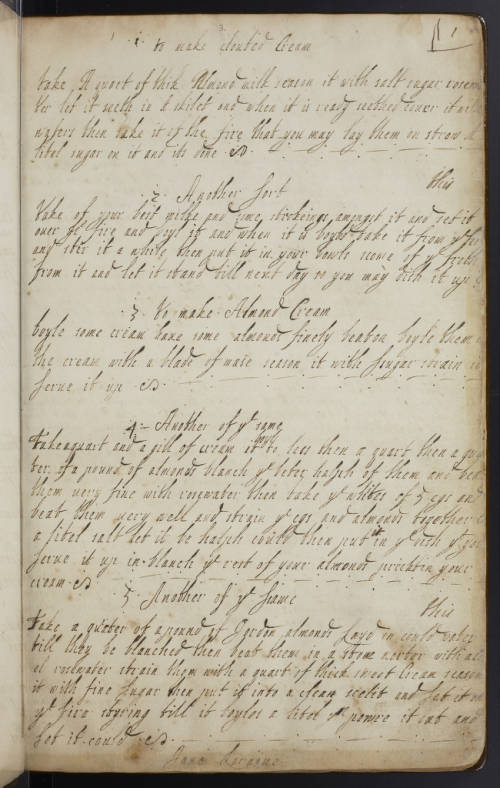 1 to make clouted Cream
1
take A quart of thik Almond milk season it with salt sugar rosewa
ter let it seeth in a skilet and when it is ready seethed cover it with
wafers then take it of the fire that you may lay them on straw
litel sugar on it and its done
this
2 Another sort
Take of your best milke and some strokeings amongst it and set it
over the fire and boyl it and when it is boyled take it from ye fire
and stir it a while then put it in your bowls scume of ye froth
from it and let it stand till next day so you may dish it up
3 To make Almond Cream
boyle some cream have some almonds finely beaton boyle them in
the cream with a blade of mase season it with sugar strain it
serve it up
4 Another of ye same
Take a quart and a gill of cream it to less then a quart then a quar
ter of a pound of almonds blanch ye beter halfe of them and beat
them very fine with rosewater then take ye whites of 5 egs and
beat them very well and strain ye egs and almonds together
a litel salt let it be halfe could then put it in ye dish ye
serve it up in blanch ye rest of your almonds prick in your
cream
5 Another of ye same
this
Take a quarter of a pound of Jordon almonds layd in could water
till they be blanched then beat them in a stone morter with a lit
el rosewater strain them with a quart of thick sweet Cream season
it with fine sugar then put it into a clean scelet and set it on
ye fire styring till it boyles a litel yn power it out and
let it could